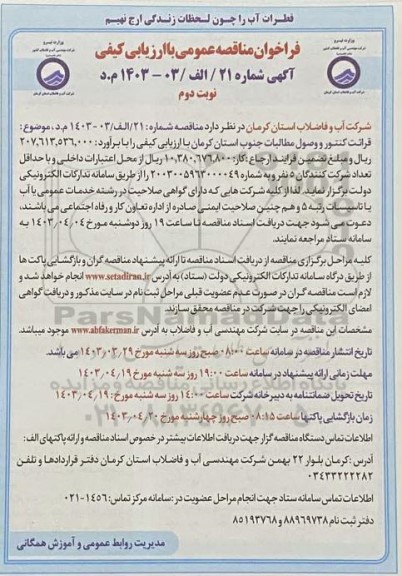 قطرات آب را چون لحظات زندگی ارج نهیم
وزارت نیرو
وزارت نیرو
فراخوان مناقصه عمومی با ارزیابی کیفی
آگهی شماره ۲۱ / الف / ۰۳ – ۱۴۰۳ م.د
نوبت دوم
شرکت آب و فاضلاب استان کرمان در نظر دارد مناقصه شماره : ۲۱/الف/۰۳-۱۴۰۳ م.د ، موضوع :
قرائت کنتور و وصول مطالبات جنوب استان کرمان با ارزیابی کیفی را با برآورد : ۲۰۷,۶۱۳,۵۳۶,۰۰۰
ریال و مبلغ تضمین فرایند ارجاع کار: ۱۰,۳۸۰,۶۷۶,۸۰۰ ریال از محل اعتبارات داخلی و با حداقل
تعداد شرکت کنندگان ۵ نفر و به شماره ۲۰۰۳۰۰۵۹۶۳۰۰۰۰۴۹ را از طریق سامانه تدارکات الکترونیکی
دولت برگزار نماید. لذا از کلیه شرکت هایی که دارای گواهی صلاحیت در رشته خدمات عمومی یا آب
یا تاسیسات رتبه ۵ و هم چنین صلاحیت ایمنی صادره از اداره تعاون کار و رفاه اجتماعی می باشند،
دعوت می شود جهت دریافت اسناد مناقصه تا ساعت ۱۹ روز دوشنبه مورخ ۱۴۰۳/۰۴/۰۴ به
سامانه ستاد مراجعه نمایند.
کلیه مراحل برگزاری مناقصه از دریافت اسناد مناقصه تا ارائه پیشنهاد مناقصه گران و بازگشایی پاکت ها
از طریق درگاه سامانه تدارکات الکترونیکی دولت (ستاد) به آدرس www.setadiran.ir انجام خواهد شد و
لازم است مناقصه گران در صورت عدم عضویت قبلی مراحل ثبت نام در سایت مذکور و دریافت گواهی
امضای الکترونیکی را جهت شرکت در مناقصه محقق سازند.
مشخصات این مناقصه در سایت شرکت مهندسی آب و فاضلاب به آدرس www.abfakerman.ir موجود میباشد.
تاریخ انتشار مناقصه در سامانه ساعت ۰۸:۰۰ صبح روز سه شنبه مورخ ۱۴۰۳/۰۳/۲۹ می باشد.
مهلت زمانی ارائه پیشنهاد در سامانه ساعت ۱۹:۰۰ روز سه شنبه مورخ ۱۴۰۳/۰۴/۱۹
تاریخ تحویل ضمانتنامه به دبیرخانه شرکت ساعت ۱۴:۰۰ روز سه شنبه مورخ : ۱۴۰۳/۰۴/۱۹
زمان بازگشایی پاکتها ساعت ۰۸:۱۵ صبح روز چهارشنبه مورخ ۱۴۰۳/۰۴/۲۰
اطلاعات تماس دستگاه مناقصه گزار جهت دریافت اطلاعات بیشتر در خصوص اسناد مناقصه و ارائه پاکتهای الف:
آدرس : کرمان بلوار ۲۲ بهمن شرکت مهندسی آب و فاضلاب استان کرمان دفتر قراردادها و تلفن
۰۳۴۳۳۲۲۲۲۸۲
اطلاعات تماس سامانه ستاد جهت انجام مراحل عضویت در : سامانه مرکز تماس : ۱۴۵۶-۰۲۱
دفتر ثبت نام ۸۸۹۶۹۷۳۸ و ۸۵۱۹۳۷۶۸
مدیریت روابط عمومی و آموزش همگانی